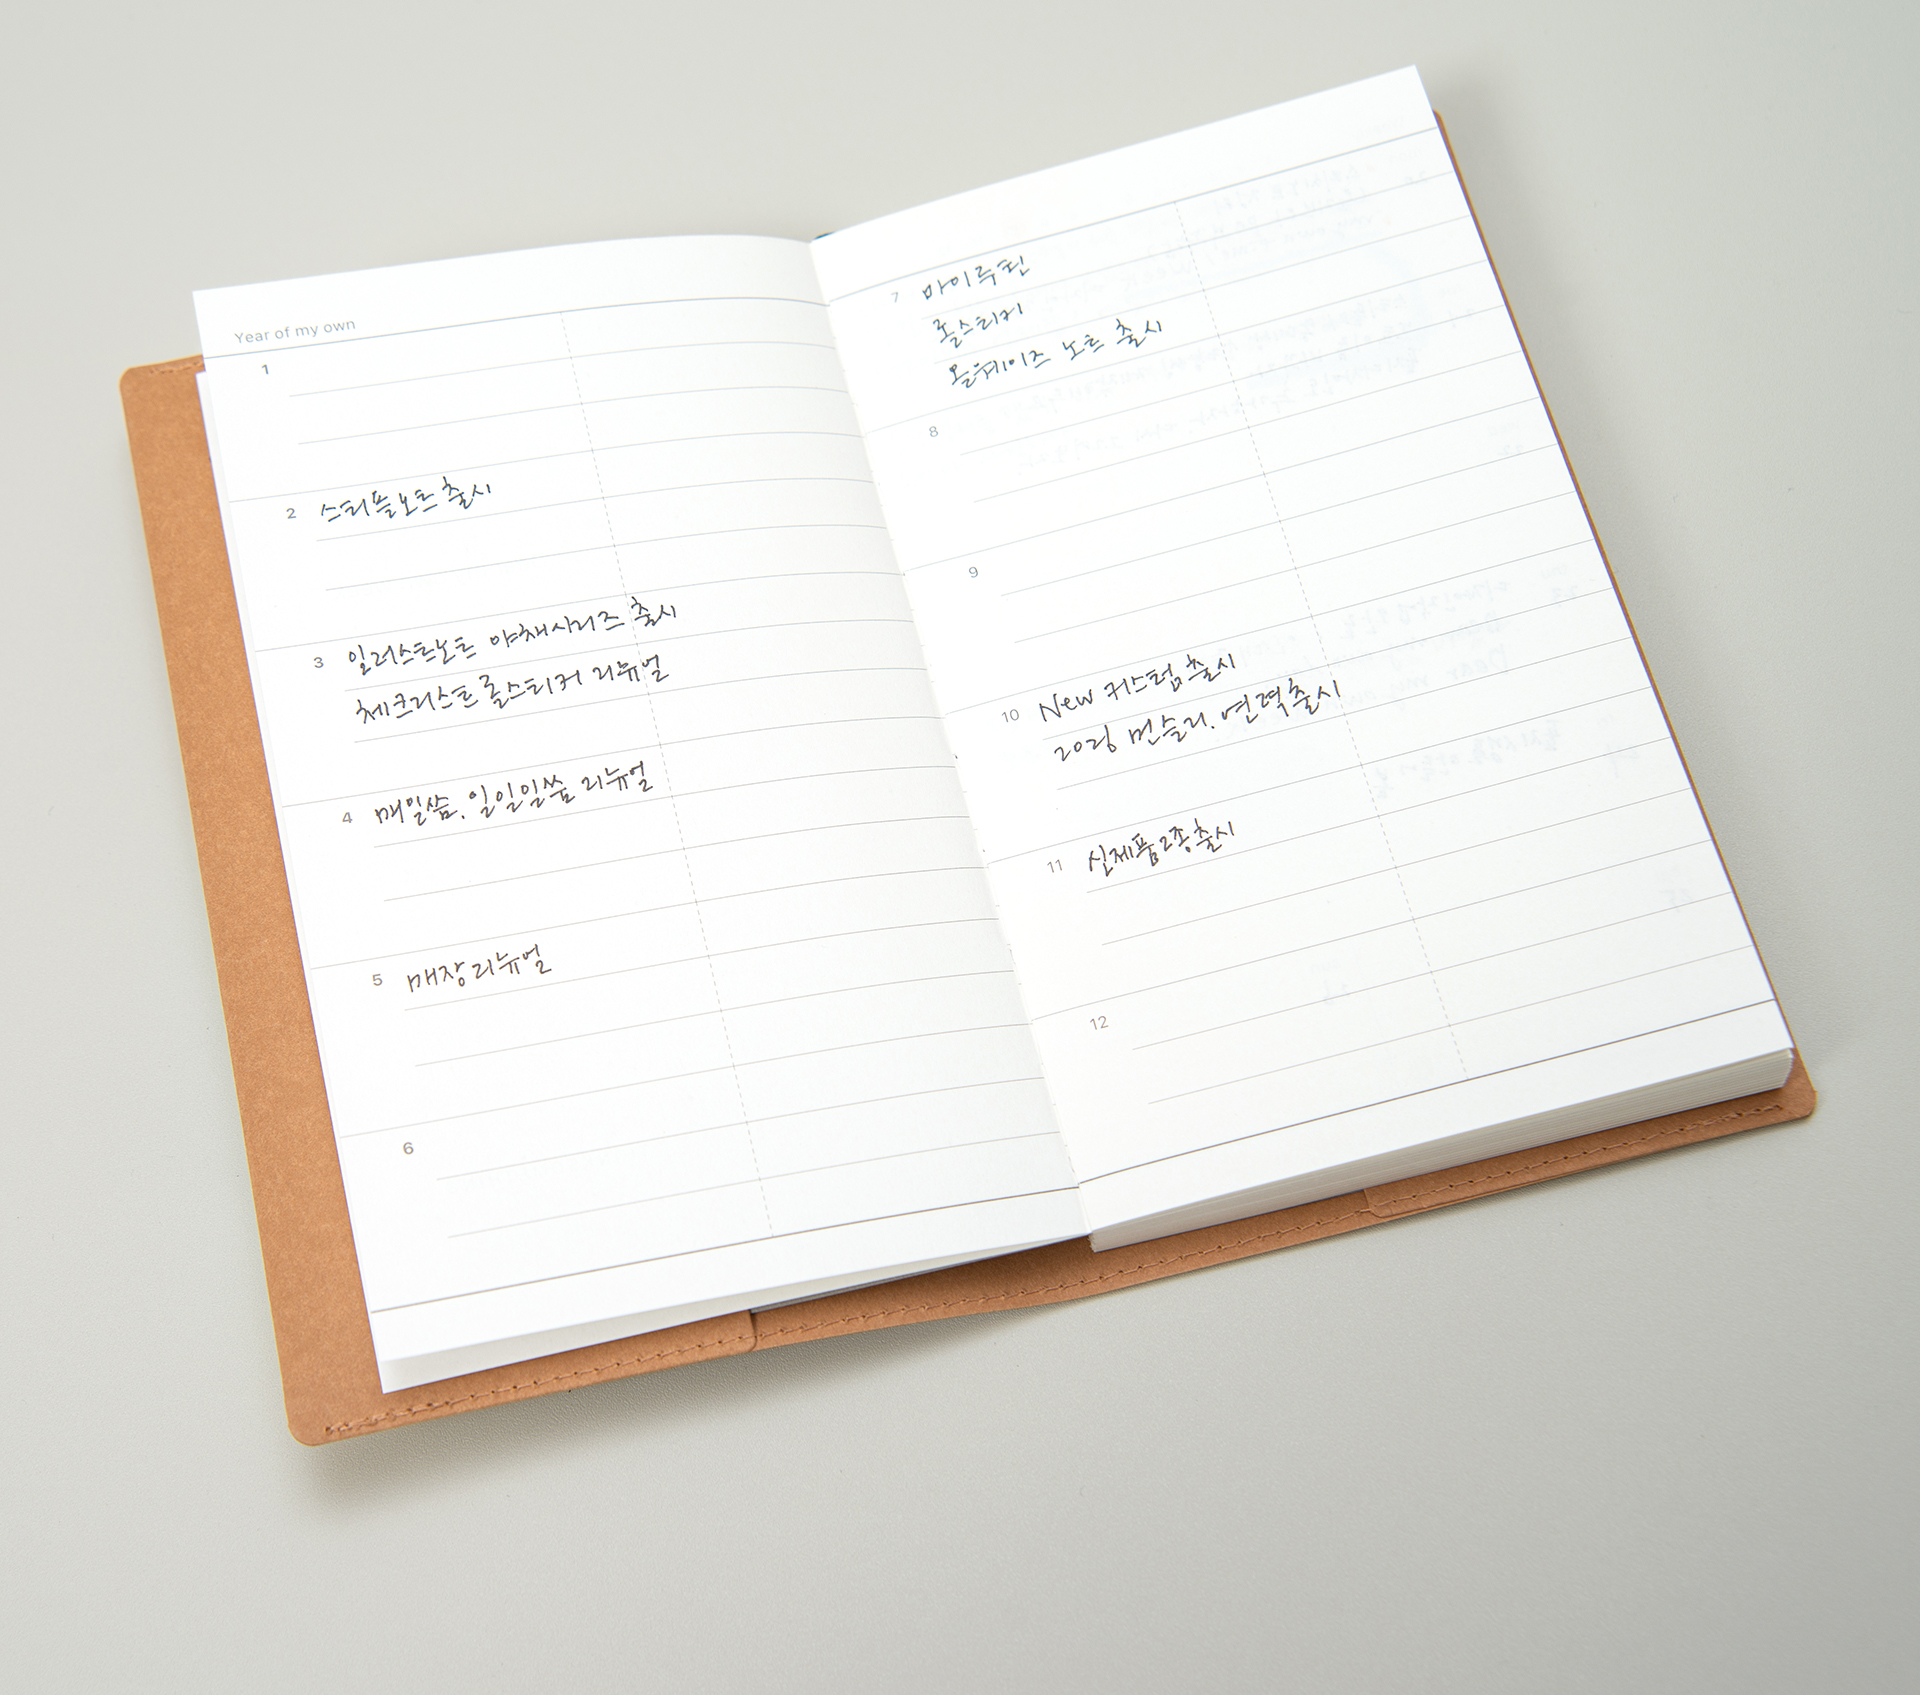 Year of my own
1
2 스티플노트 출시
3 일러스트노트 야채시리즈 출시
체크리스트 롤스티커 리뉴얼
4 매일씀. 일일일씀 리뉴얼
5 매장리뉴얼
6
7 마이루틴
롤스티커
올웨이즈 노트 출시
8
9
10 New 커스텀 출시
먼슬리. 연력출시
11 신제품2종출시
12